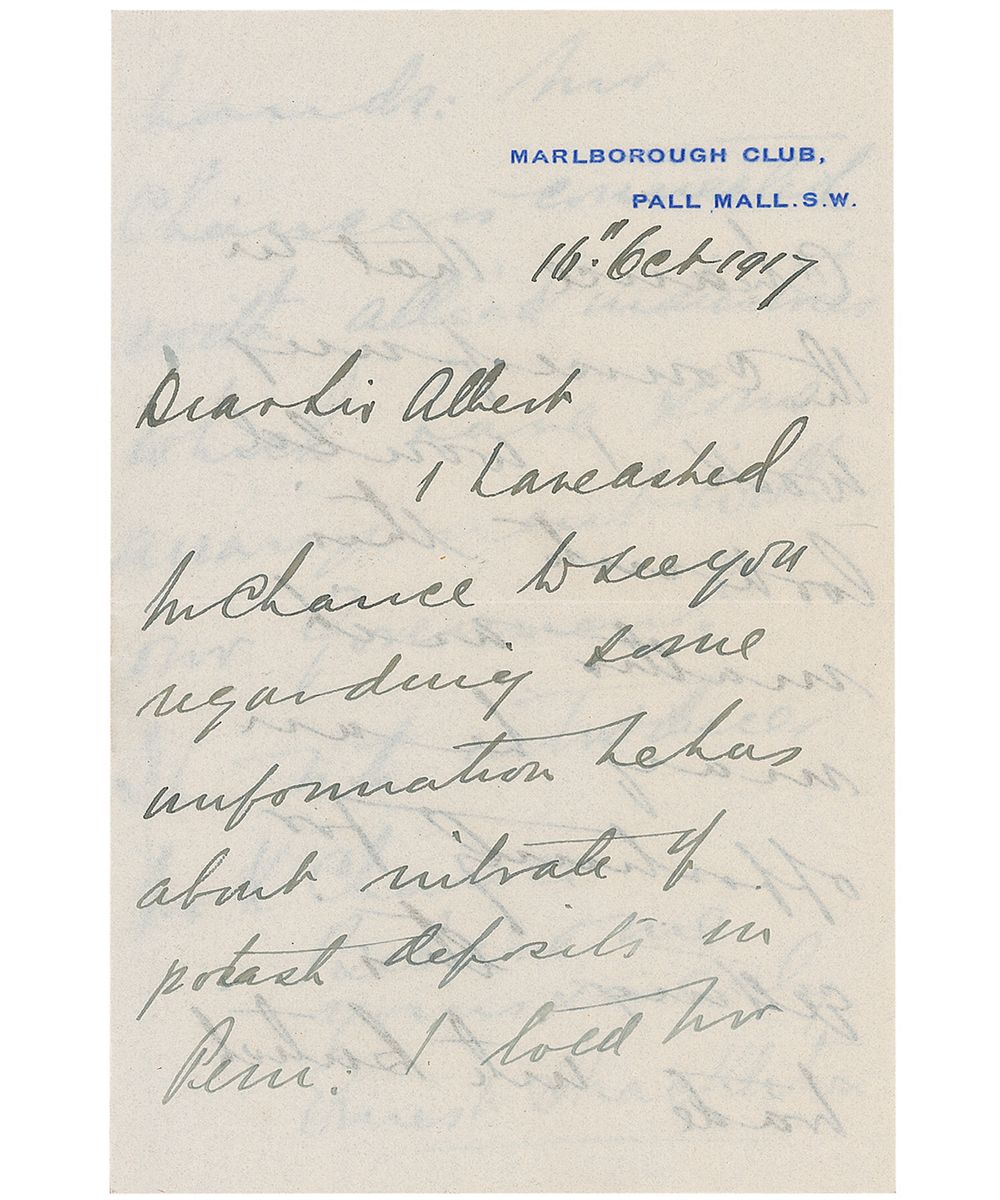 MARLBOROUGH CLUB,
PALL MALL. S.W.
16" Oct 1917
Dear Sir Albert
I have asked
Mr Chance to see you
regarding some
information he has
about nitrate of
potash deposits in
Peru. I told Mr